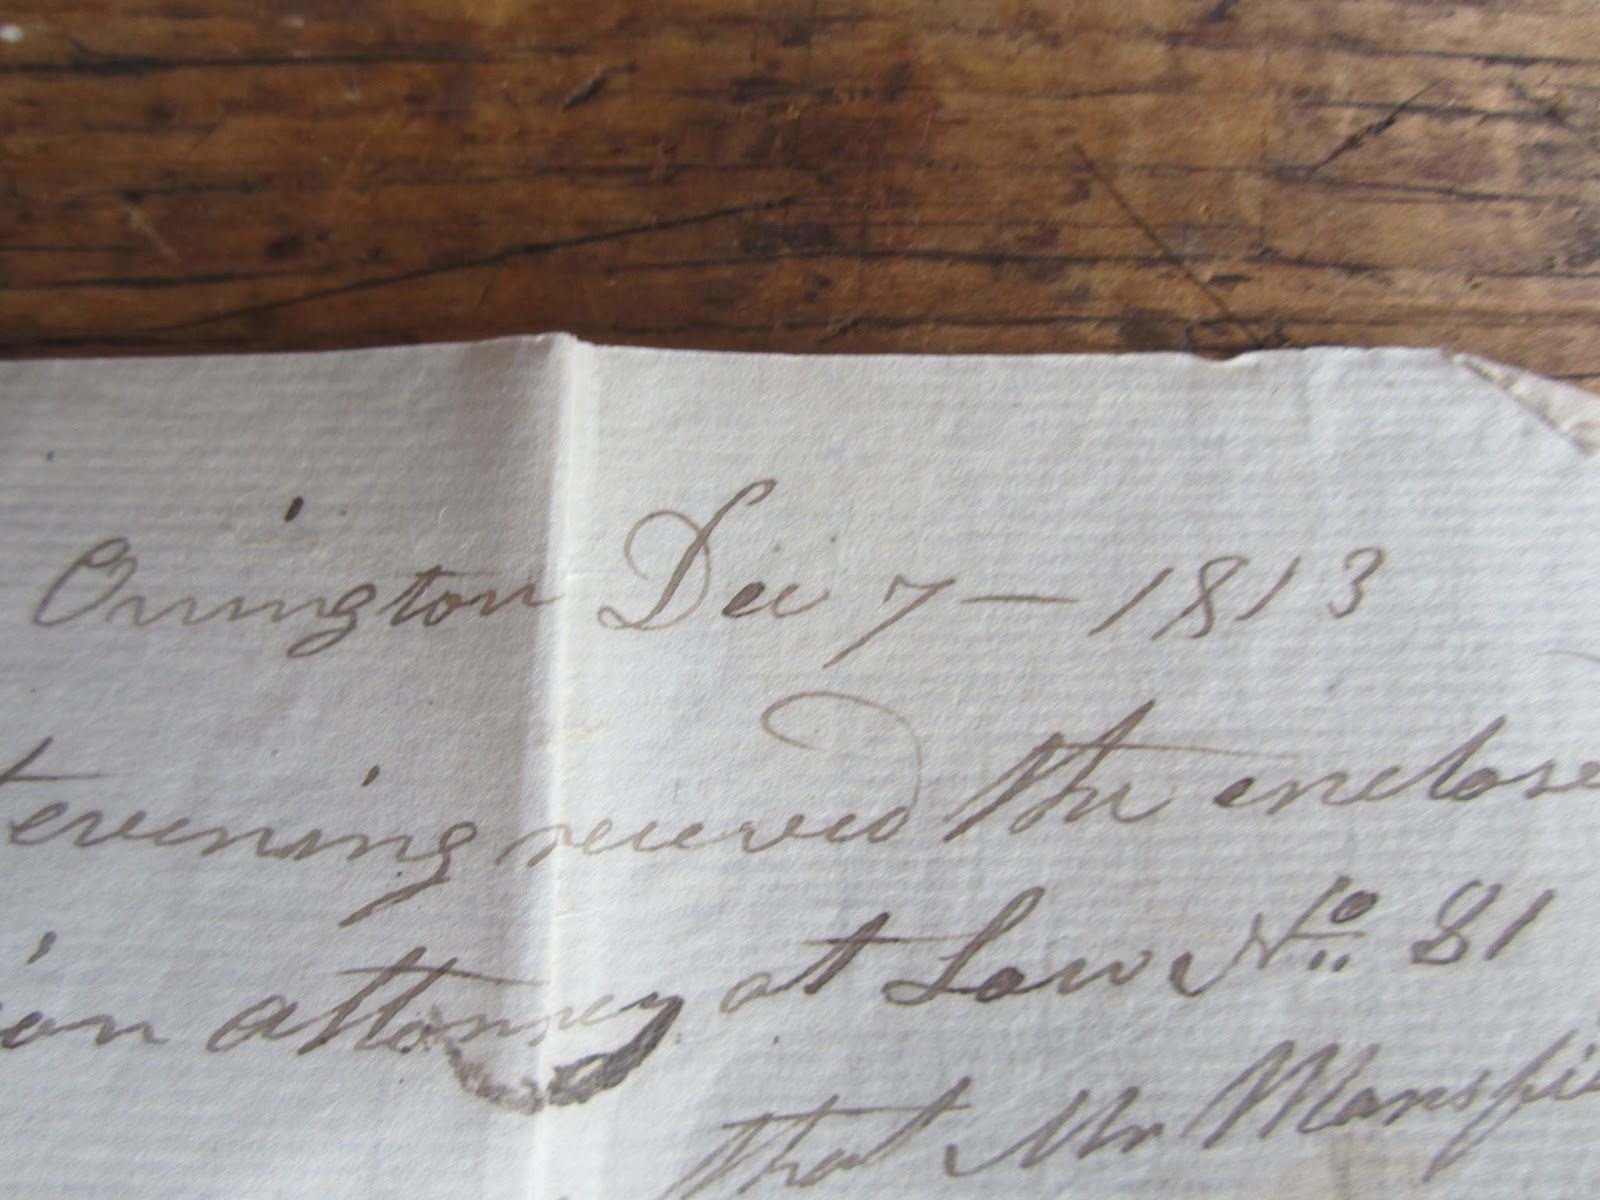 Orrington Dec 7 — 1813
evening received the enclose
on attorney at Law No. 81
that Mr Mansfi